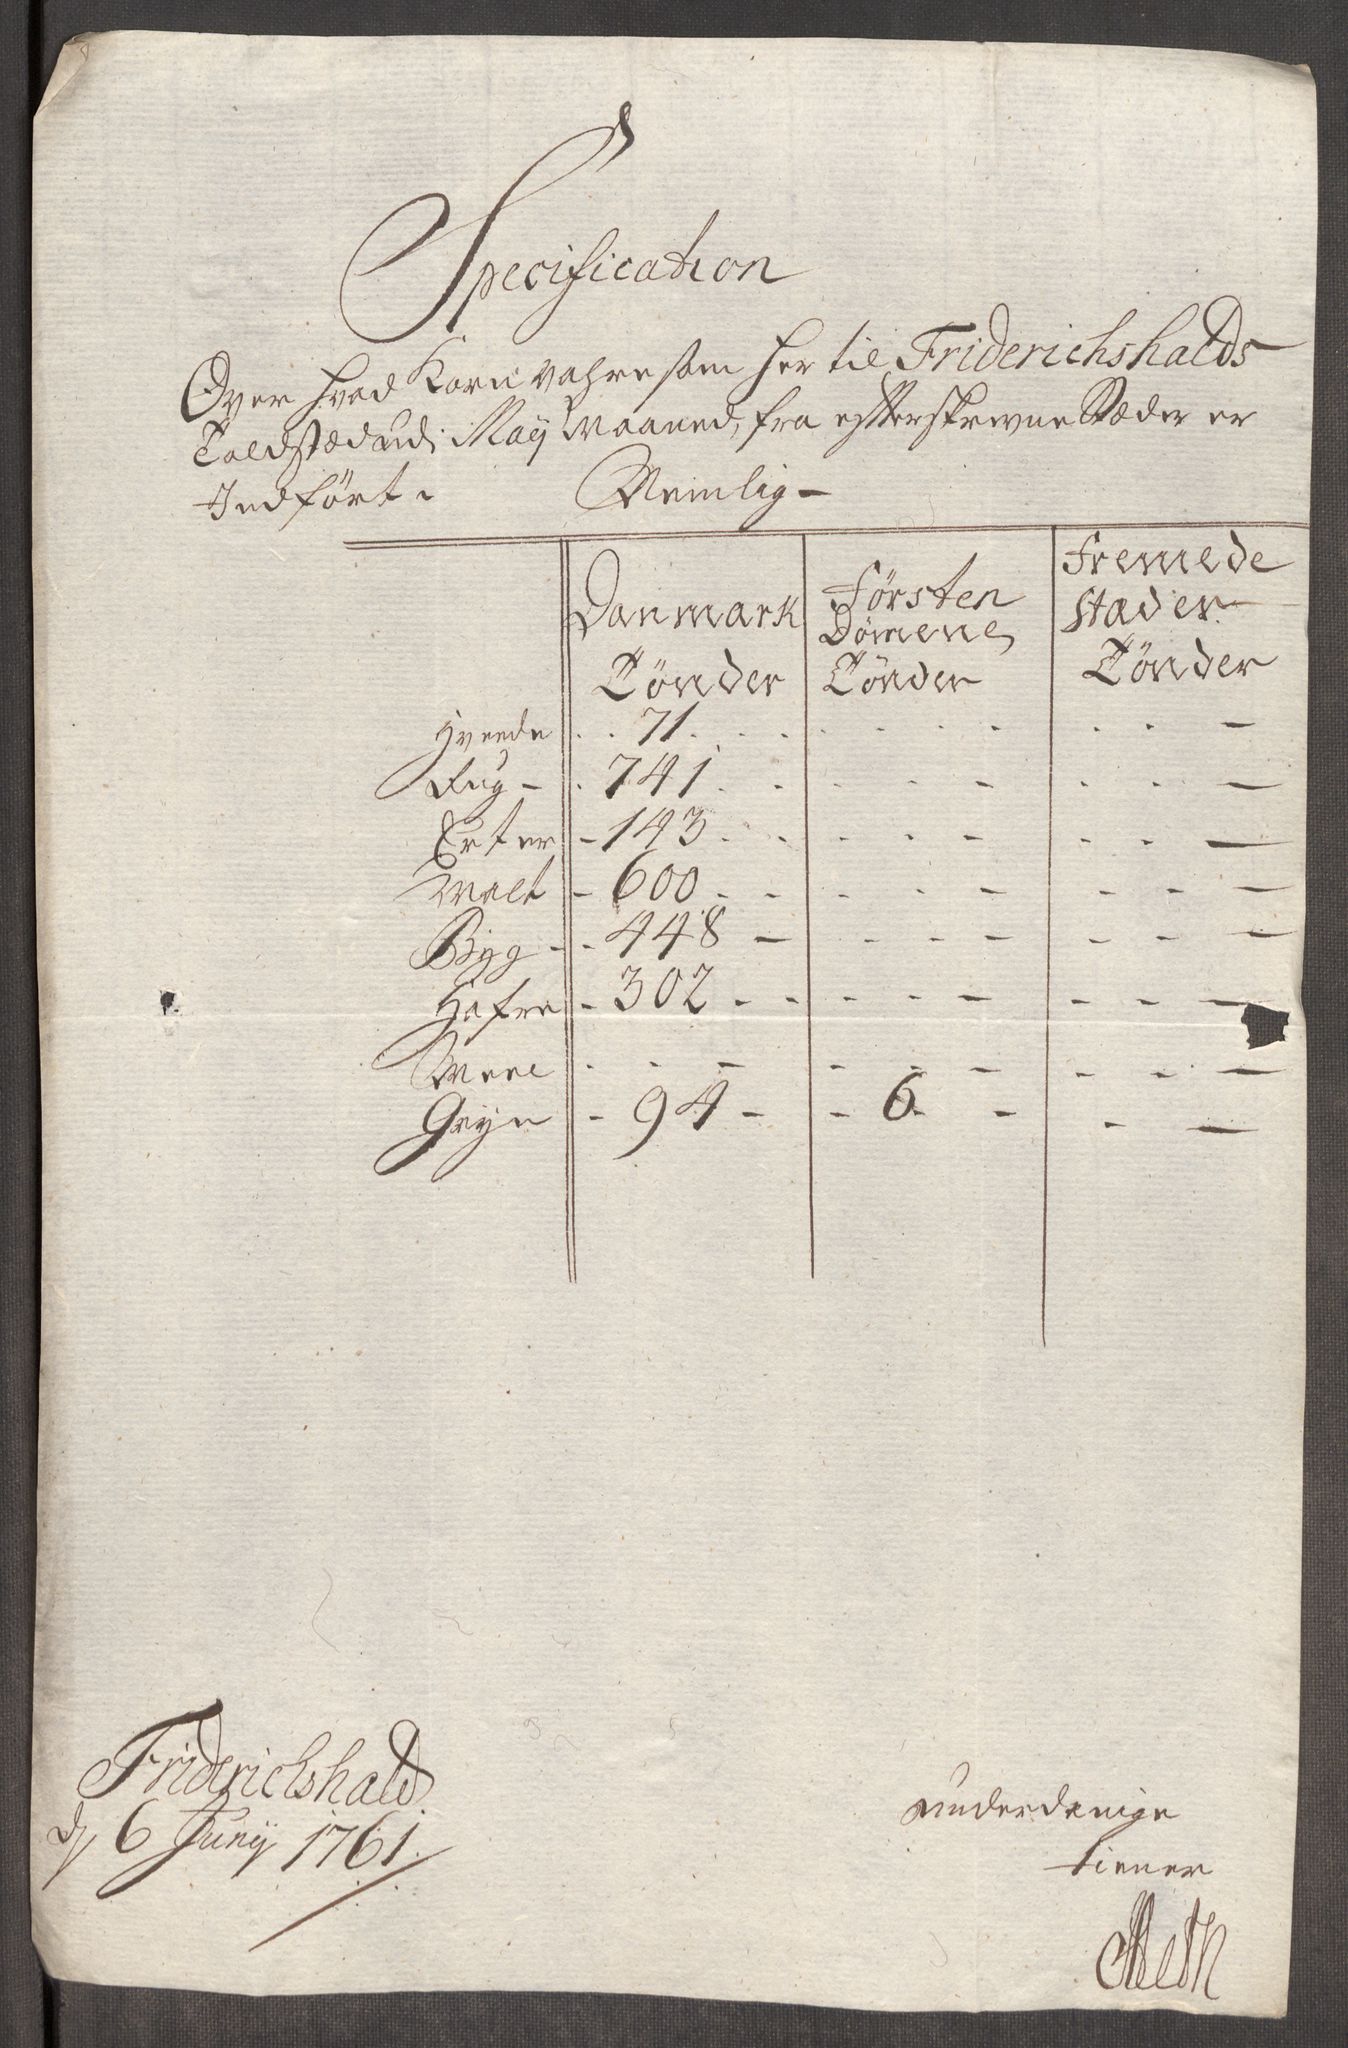 Specification
Over hvad Korn vahre som her til Friderichshalds
Toldstæd udi Maij Maaned, fra efterskrevne Stæder er
Indført. Nemlig -
Danmark Försten Fremede
Dömene stæder
Tönder Tönder Tönder
Hveede 71
Rug - 741
Erter - 143
Malt - 600
Byg - 448 -
Hafre - 302
Meel
Gryn - 94 - - 6 -
Friderichshald
d 6 Junij 1761.
underdanige
tiener